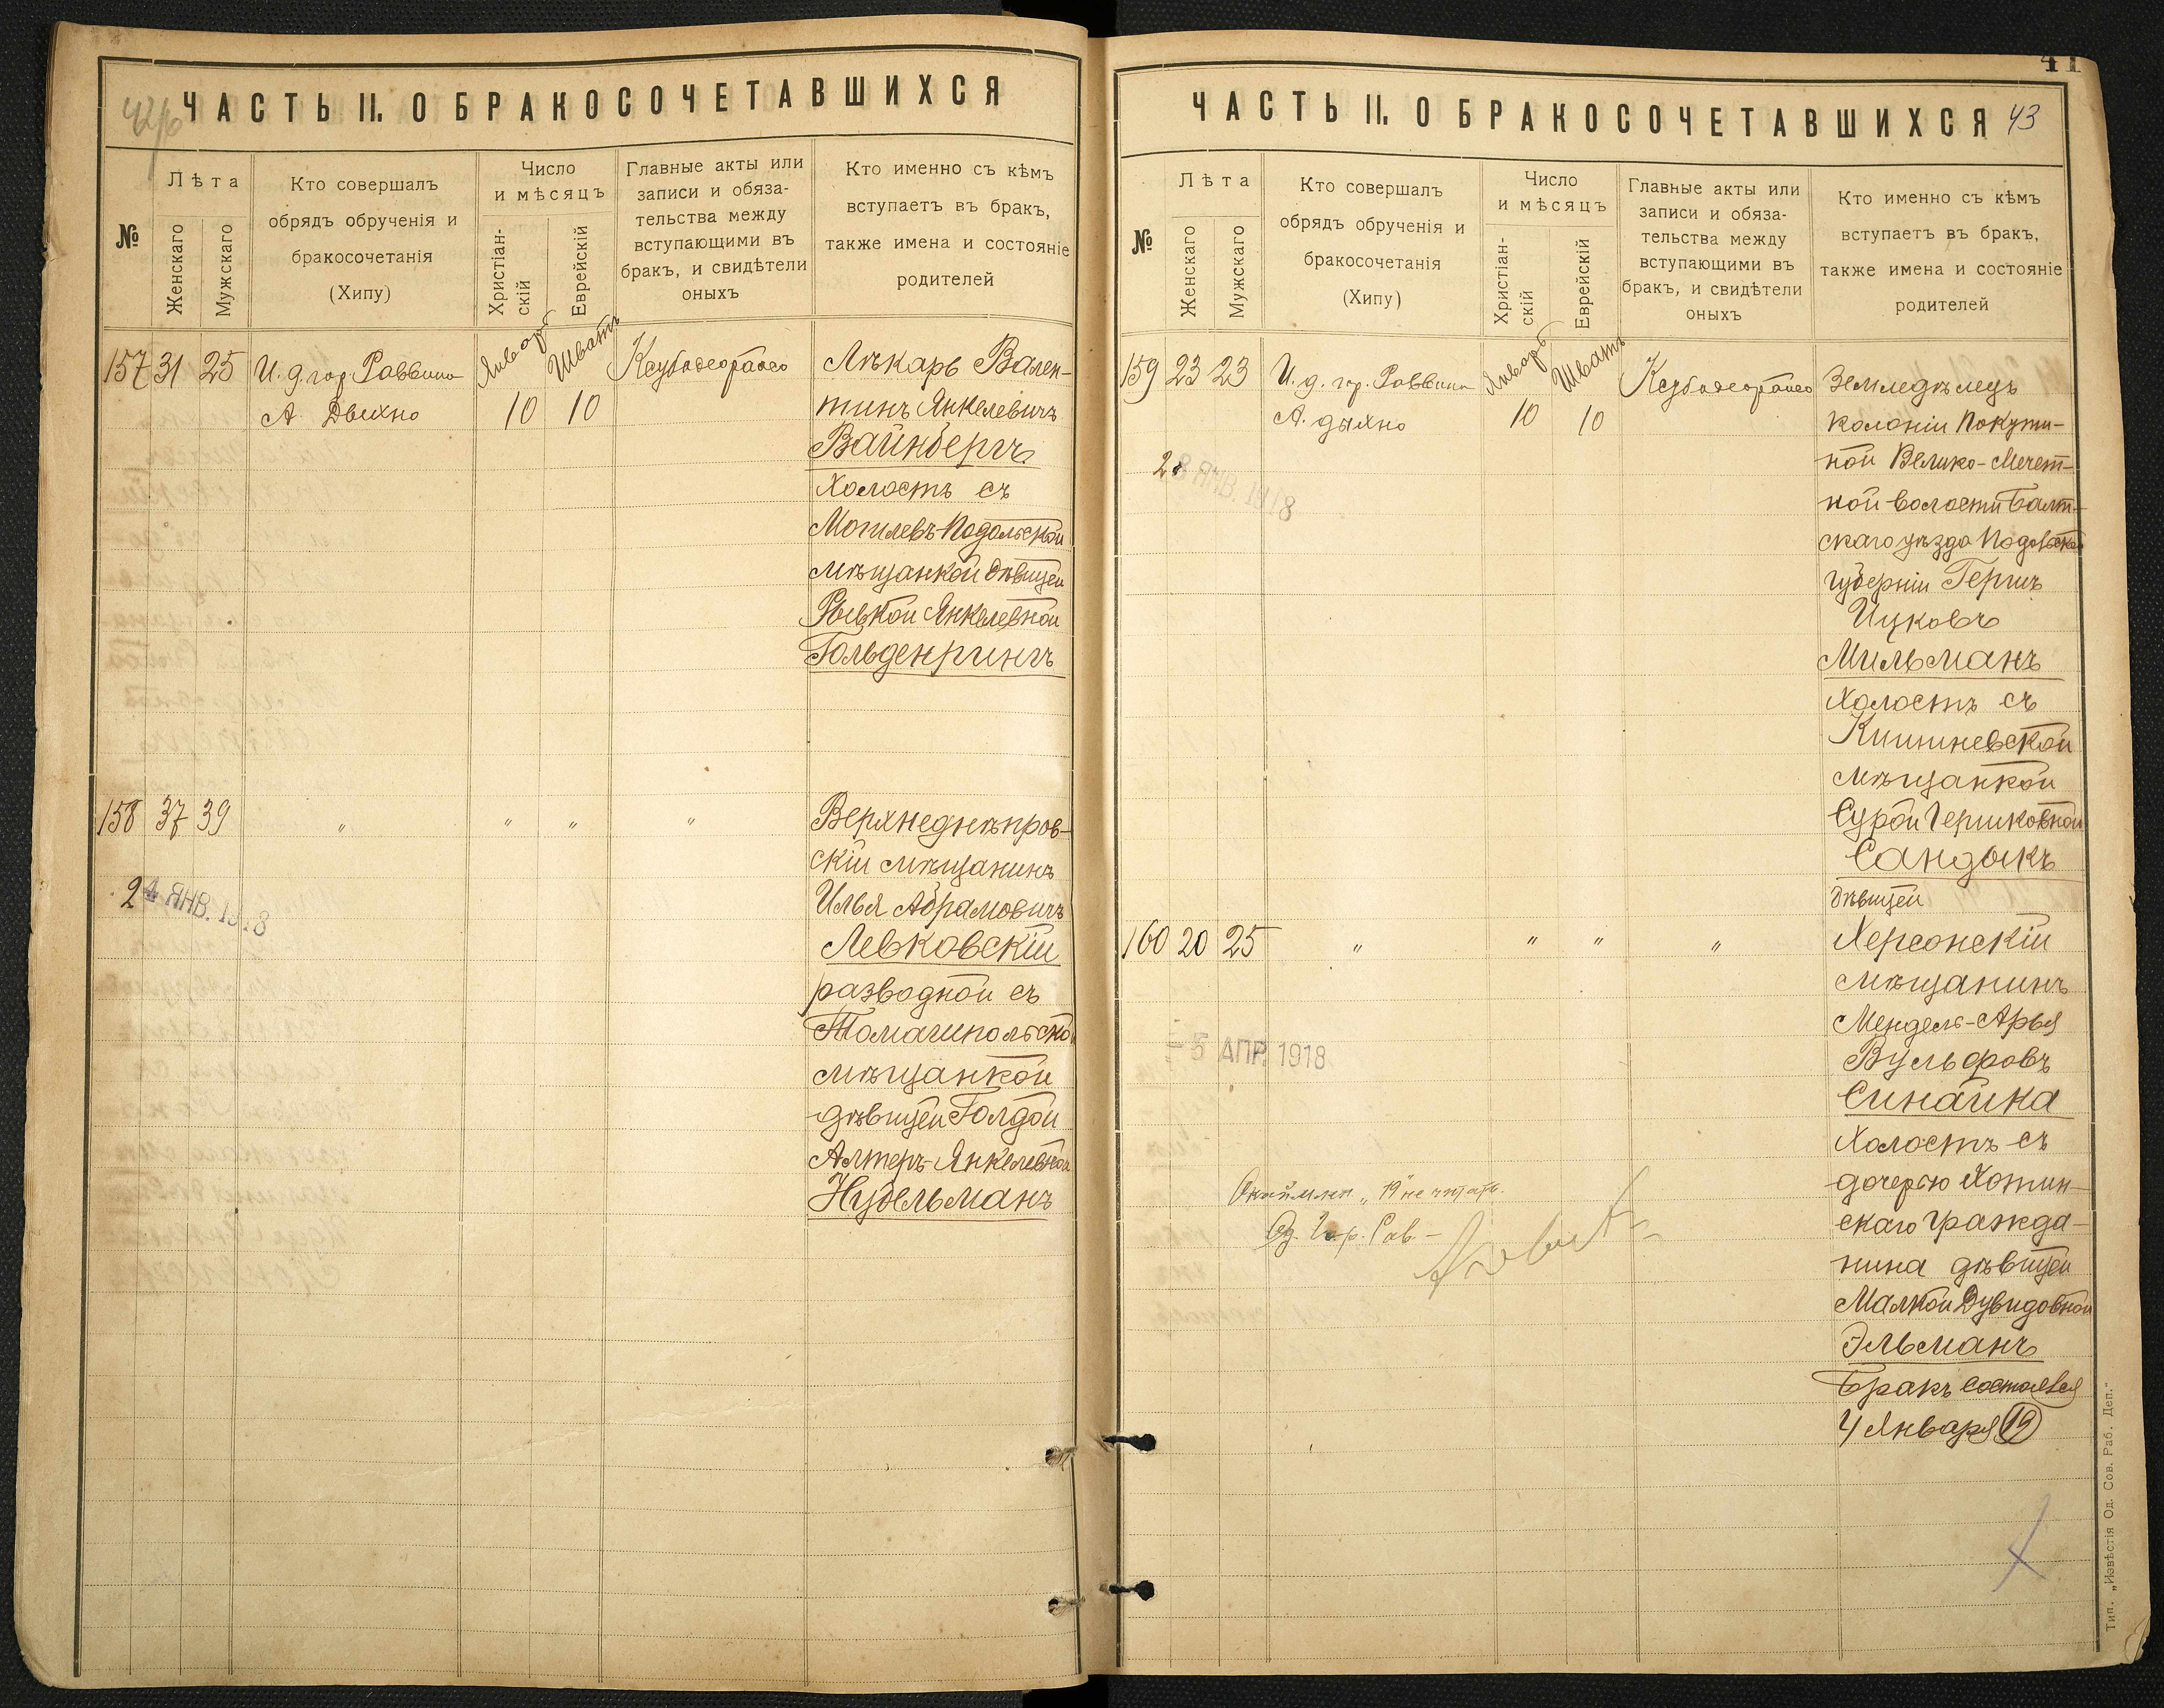 ЧАСТЬ II. О БРАКОСОЧЕТАВШИХСЯ
№
Лѣта
Женскаго
Мужскаго
Кто совершалъ
обрядъ обрученія и
бракосочетанія
(Хипу)
Число
и мѣсяцъ
Христіан-
скій
Еврейскій
Главные акты или
записи и обяза-
тельства между
вступающими въ
бракъ, и свидѣтели
оныхъ
Кто именно съ кѣмъ
вступаетъ въ бракъ,
также имена и состояніе
родителей
157 31 25
И. д. гор. Раввина
А. Дыхно
Январь
10
Шватъ
10
Лѣкарь Вален-
тинъ Янкелевичъ
Вайнбергъ
Холостъ съ
Могилевъ-Подольской
мѣщанкой дѣвицей
Рывкой Янкелевной
Гольденрингъ
158 37 39
" " " "
24 ЯНВ. 1918
Верхнеднѣпров-
скій мѣщанинъ
Илья Абрамовичъ
Левковскій
разводной съ
мѣщанкой
дѣвицей Голдой
Алтеръ-Янкелевной
Нудельманъ
ЧАСТЬ II. О БРАКОСОЧЕТАВШИХСЯ
41
43
№
Лѣта
Женскаго
Мужскаго
Кто совершалъ
обрядъ обрученія и
бракосочетанія
(Хипу)
Число
и мѣсяцъ
Христіан-
скій
Еврейскій
Главные акты или
записи и обяза-
тельства между
вступающими въ
бракъ, и свидѣтели
оныхъ
Кто именно съ кѣмъ
вступаетъ въ бракъ,
также имена и состояніе
родителей
159 23 23
И. д. гор. Раввина
А. Дыхно
Январь
10
Шватъ
10
28 ЯНВ. 1918
Земледѣлецъ
колоніи Покути-
ной Велико-Мечет-
ной волости Балт-
скаго уѣзда Подольской
губерніи Гершъ
Ицковъ
Мильманъ
Холостъ съ
Кишиневской
мѣщанкой
Сурой Гершковной
Сандыкъ
дѣвицей
160 20 25
" " " "
- 5 АПР. 1918
Херсонскій
мѣщанинъ
Мендель-Арья
Вульфовъ
Синайка
Холостъ съ
дочерью Хотин-
скаго гражда-
нина дѣвицей
Малкой Дувидовной
Эльманъ
Бракъ состоялся
4 Января 19
"19" не читать.
Од. Гор. Рав.
Тип. „Извѣстія Од. Сов. Раб. Деп."